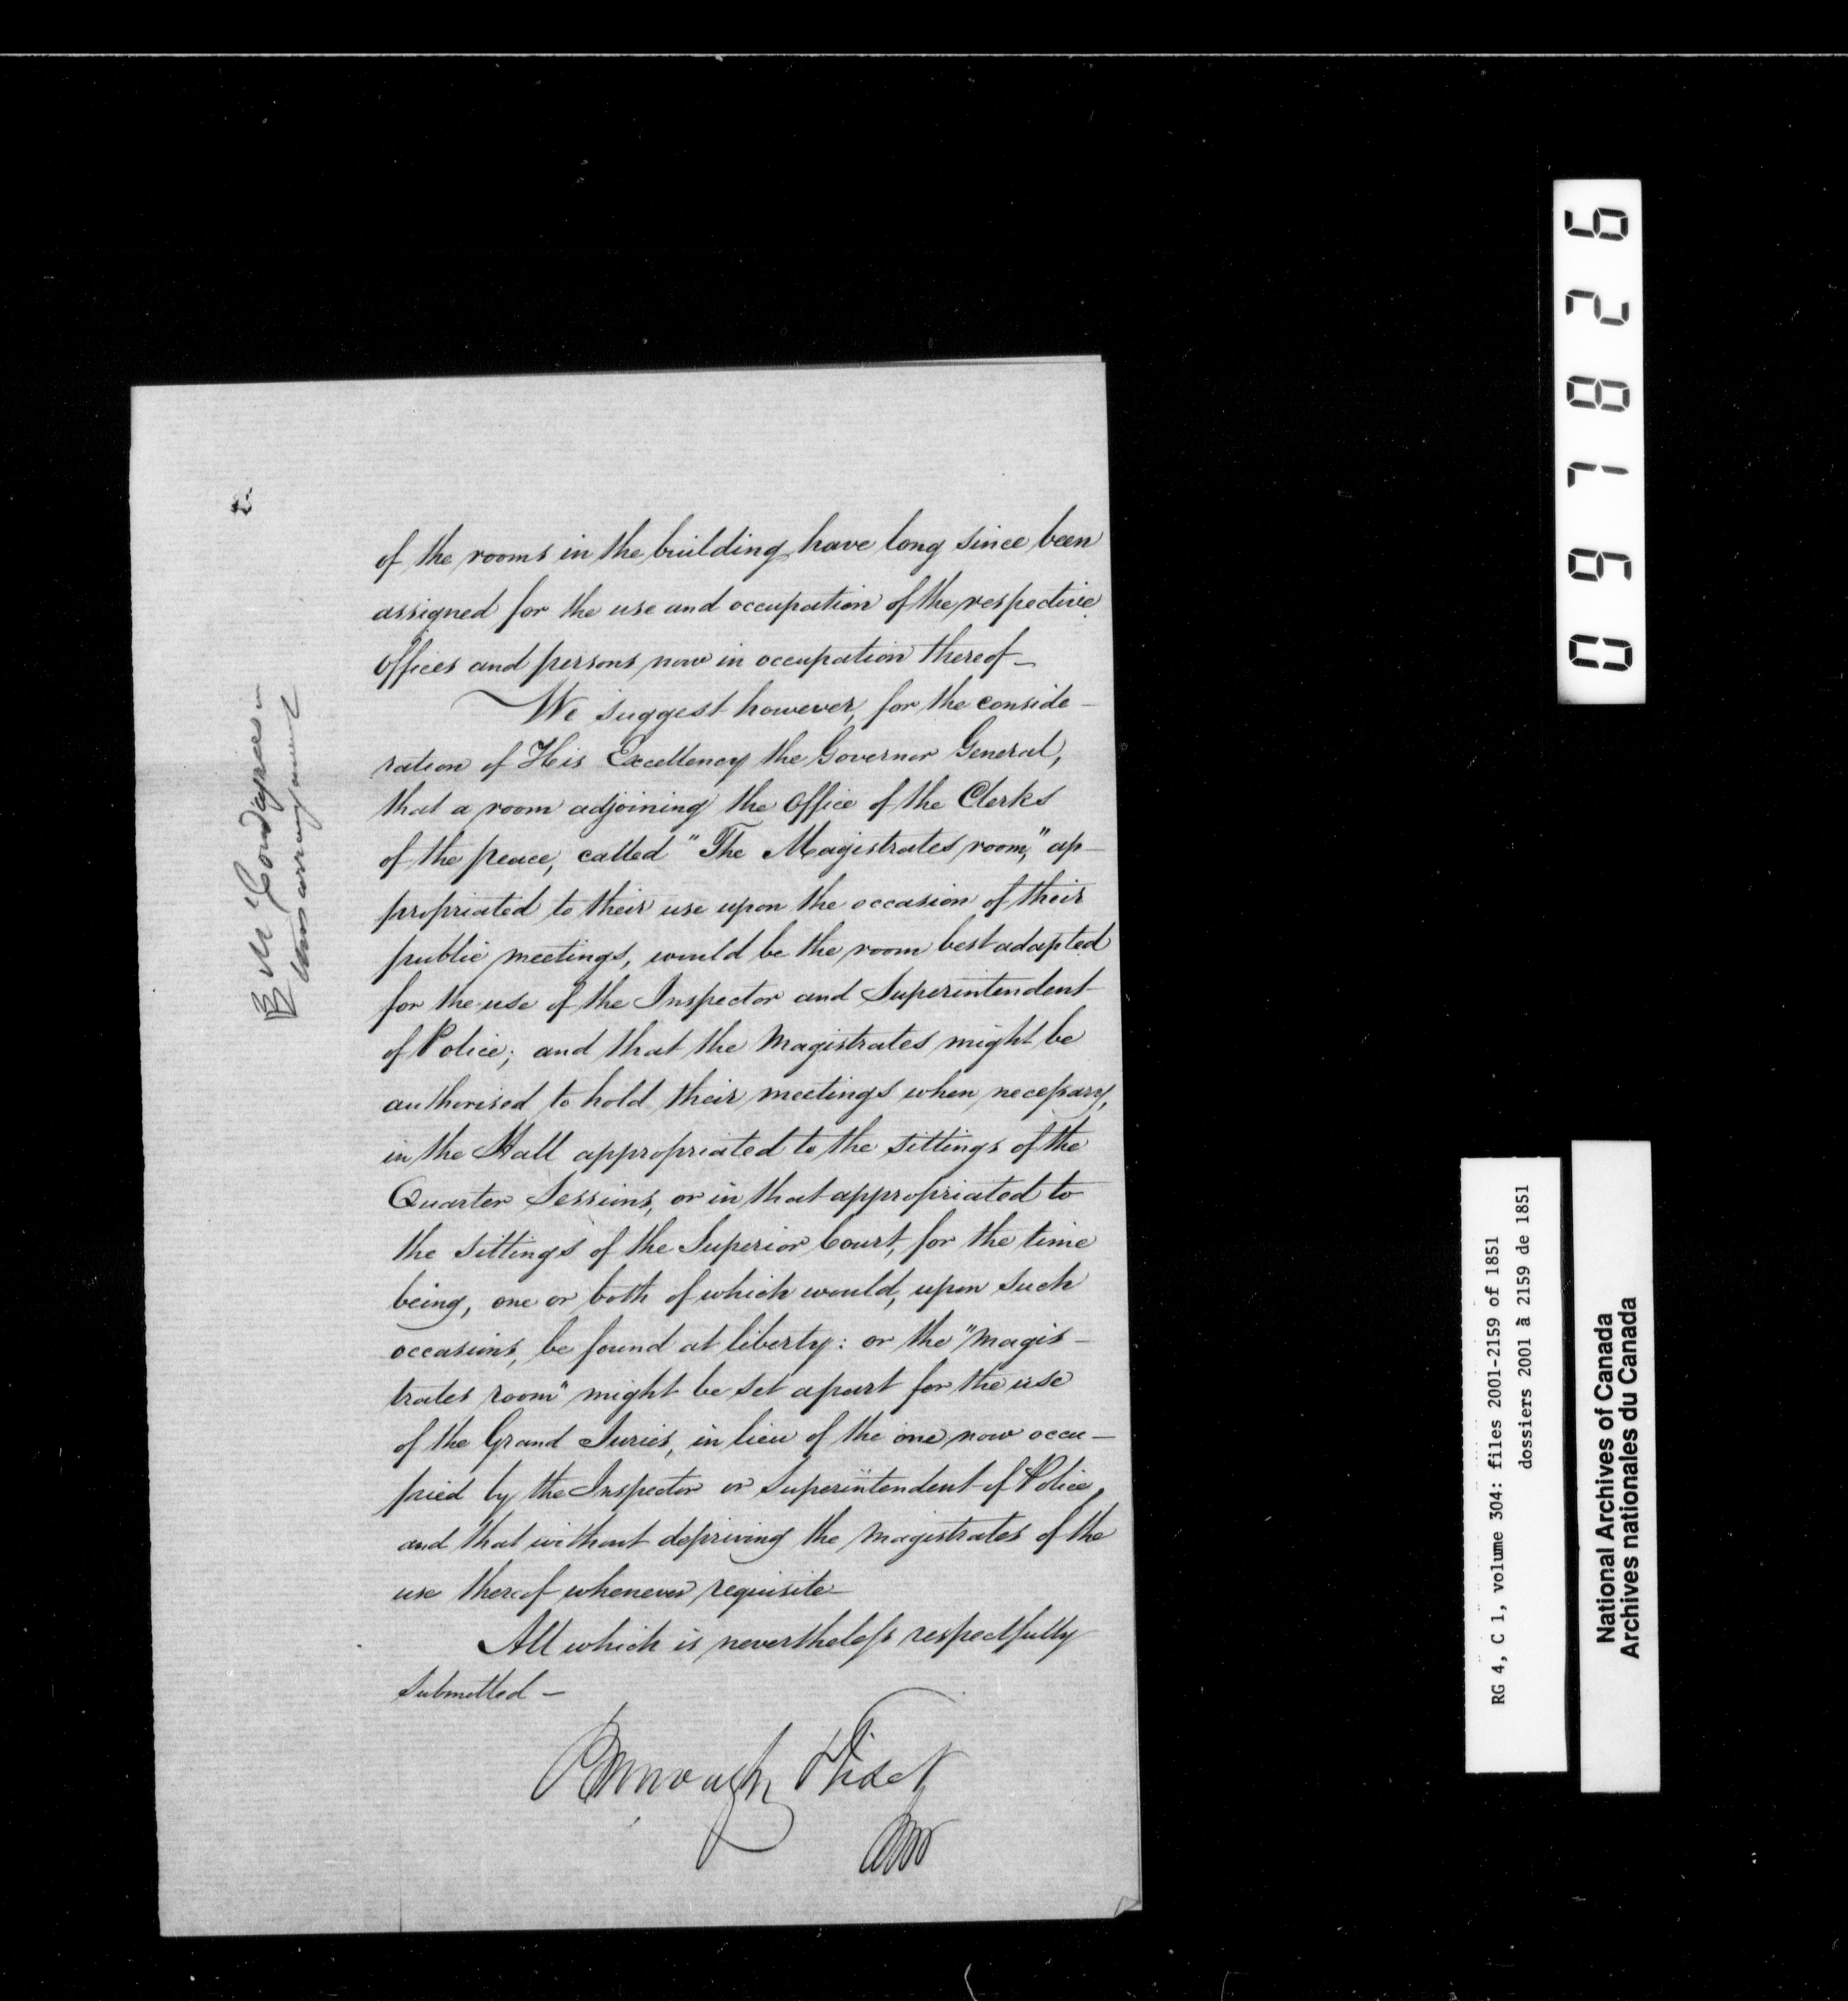 of the rooms in the building have long since been
assigned for the use and occupation of the respective
offices and persons now in occupation thereof—
We suggest however, for the conside—
ration of His Excellency the Governor General,
that a room adjoining the office of the Clerks
of the peace, called "The Magistrates room," ap—
propriated to their use upon the occasion of their
public meetings, would be the room best adapted
for the use of the Inspector and Superintendent
of Police; and that the Magistrates might be
authorised to hold their meetings when necessary,
in the Hall appropriated to the sittings of the
Quarter Sessions, or in that appropriated to
the sittings of the Superior Court, for the time
being, one or both of which would, upon such
occasions, be found at liberty: or the "Magis—
trates room" might be set apart for the use
of the Grand Juries, in lieu of the one now occu—
pied by the Inspector or Superintendent of Police,
and that without depriving the Magistrates of the
use thereof whenever requisite—
All which is nevertheless respectfully
submitted—
097826
RG 4, C 1, volume 304: files 2001-2159 of 1851
dossiers 2001 à 2159 de 1851
National Archives of Canada
Archives nationales du Canada